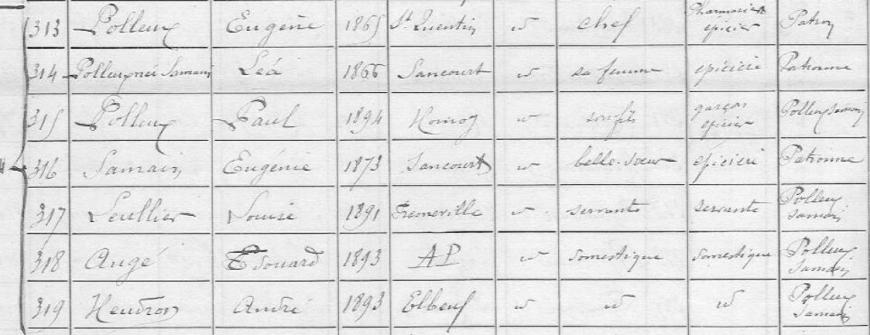 313 Polleux Eugène 1865 St Quentin id chef Pharmacien épicier Patron
314 Polleux née Samain Léa 1866 Sancourt id sa femme épicière Patronne
315 Polleux Paul 1894 id son fils garçon épicier Polleux Samain
316 Samain Eugénie 1873 Sancourt id belle-sœur épicière Patronne
317 Leullier Louise 1891 id servante servante Polleux Samain
318 Augé Edouard 1893 AP id domestique domestique Polleux Samain
319 Heudron André 1893 Elbeuf id id id Polleux Samain